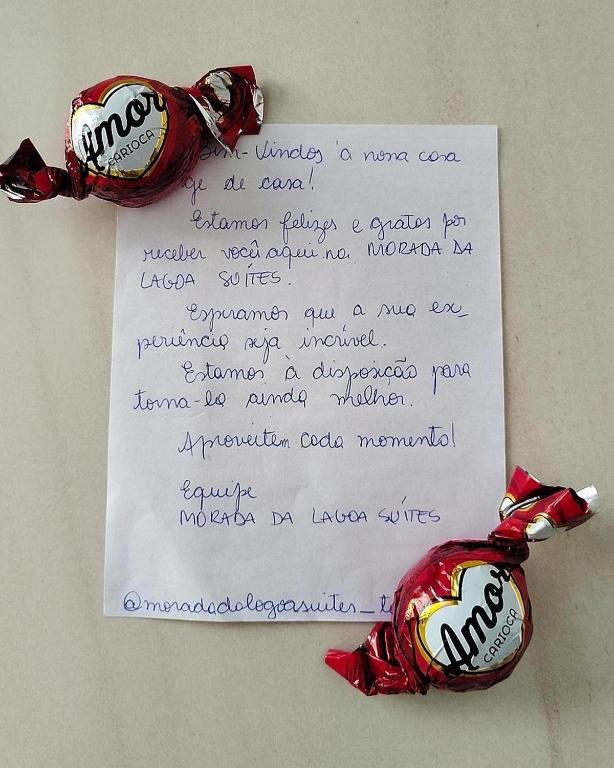 Amor
CARIOCA
Bem-Vindos à nossa casa
de casa!
Estamos felizes e gratos por
receber você aqui na MORADA DA
LAGOA SUÍTES.
Esperamos que a sua ex_
periência seja incrível.
Estamos à disposição para
torna-la ainda melhor.
Aproveitem cada momento!
Equipe
MORADA DA LAGOA SUÍTES
@moradadalagoasuites_
Amor
CARIOCA